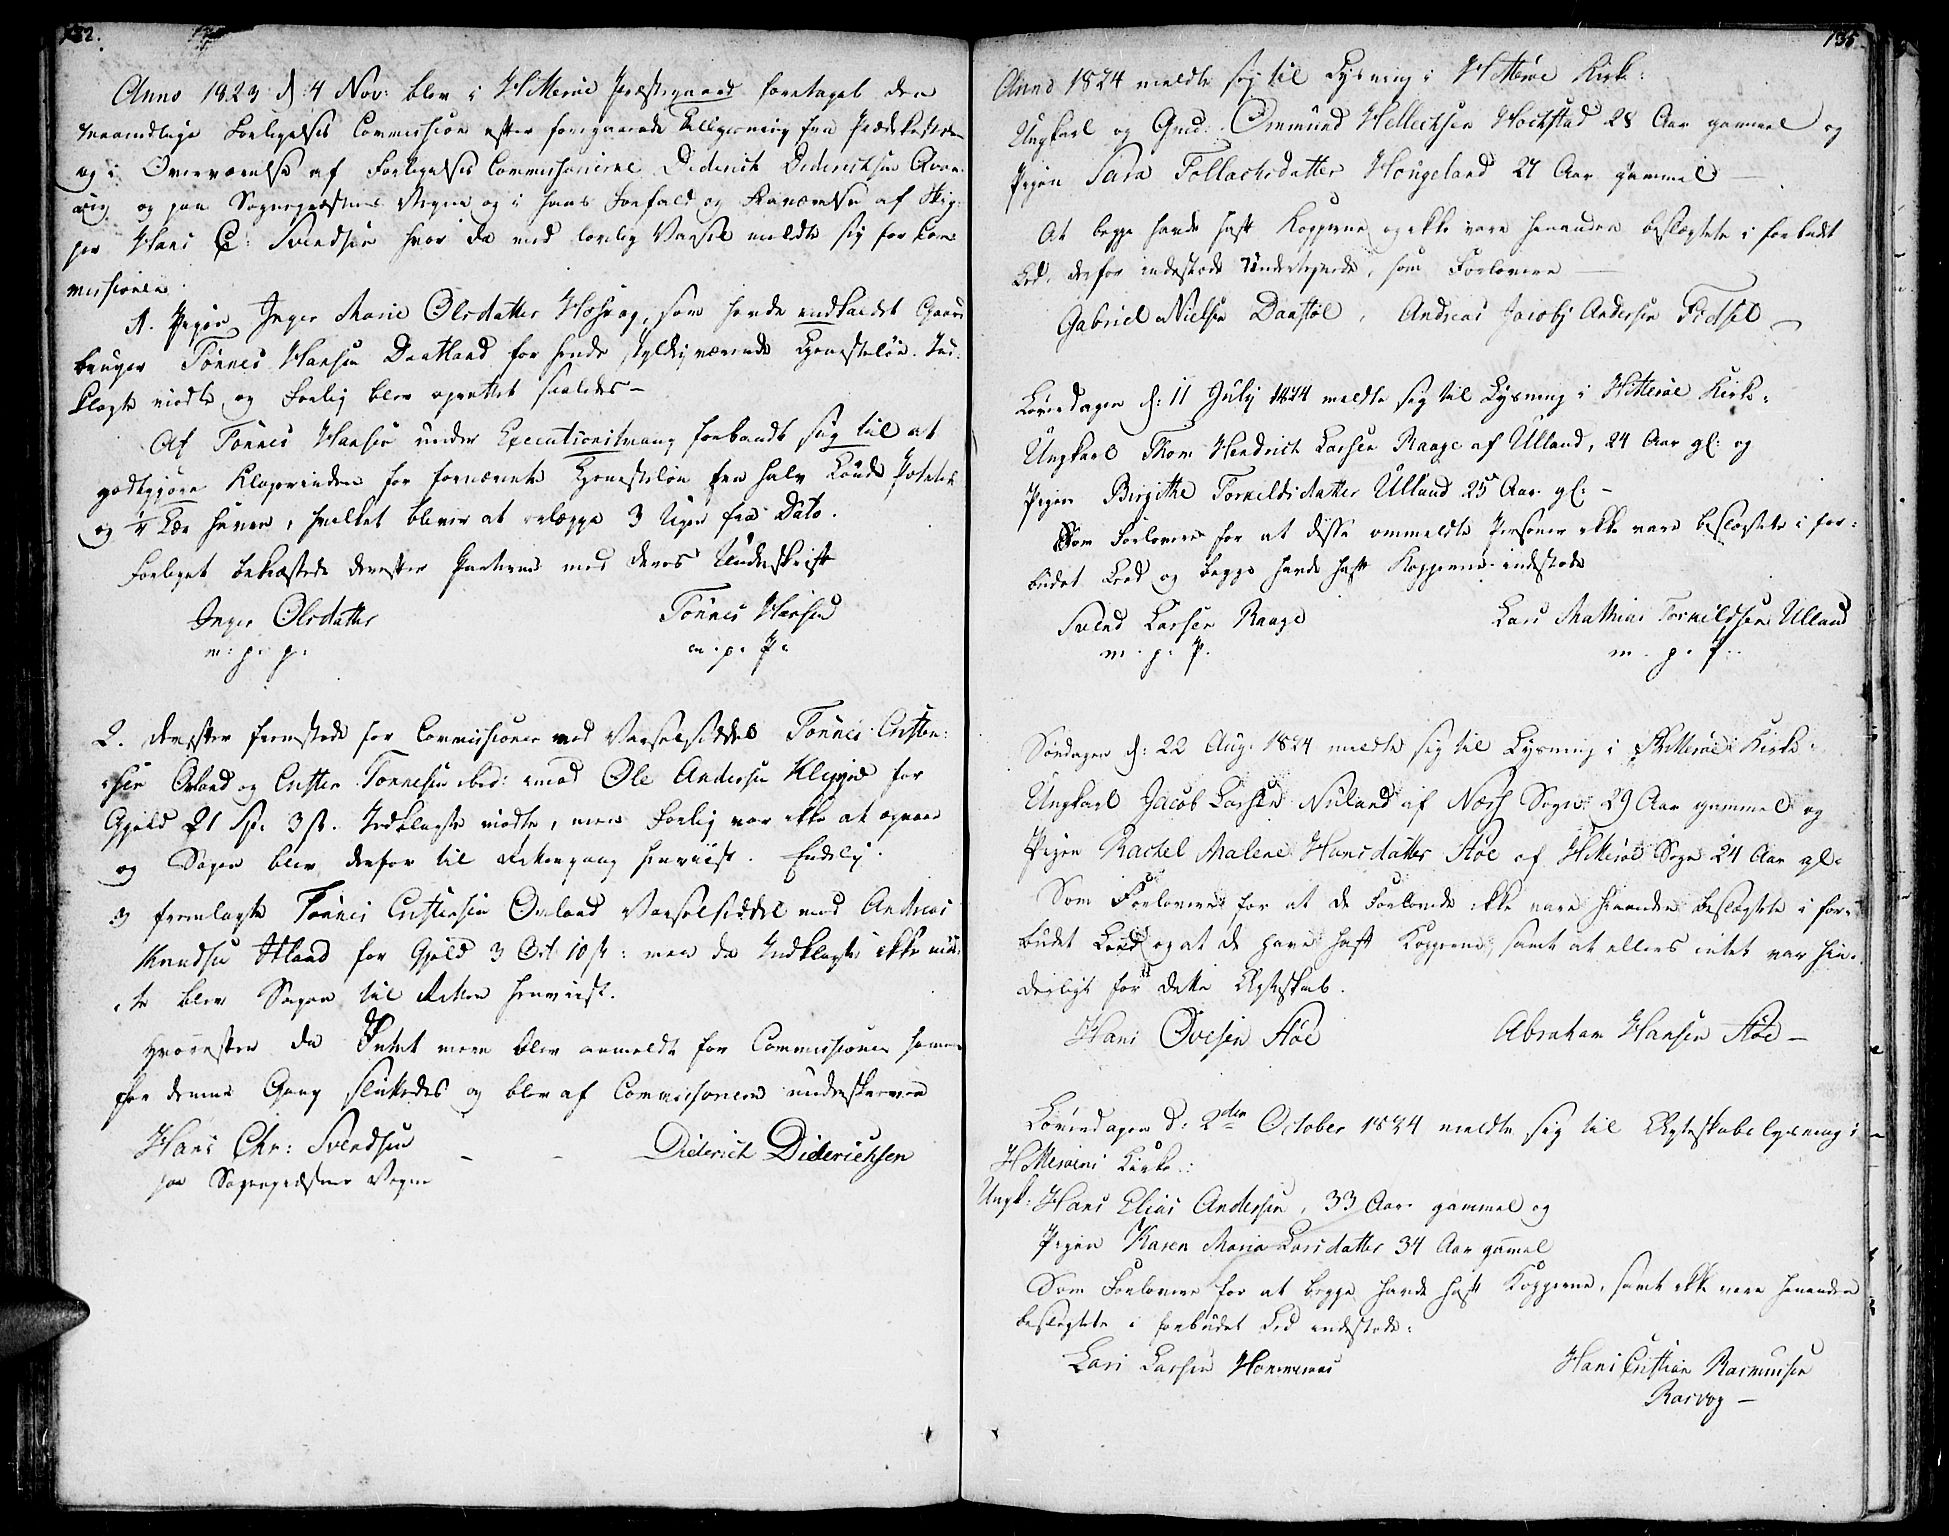 132.
Anno 1823 d: 4 Nov: blev i Hitterøe Præstegaard foretaget den
maanedlige Forligelses Commission efter foregaaende Tillysning fra Prædikestolen
og i Overværelse af Forligelses Commissionairene Diderich Diderichsen
og paa Sognepræstens Vegne og i hans Forfald og Fraværelse af
Hans C: Svendsen hvor da med lovlig Varsel meldte sig for Com-
missionen.
1. Pigen Inger Marie Olsdatter som havde indkaldet Gaard-
bruger Tönnes Hansen Daatland for hende skyldig værende Tjenesteløn. Ind-
klagte mødte og Forlig blev oprettet saaledes –
At Tönnes Hansen under Executionstvang forbandt sig til at
godtgjøre Klagerinden for fornævnte Tjenesteløn en halv Tönde Potetes
og 1/4 Tøe Havre, hvilket bliver at erlægge 3 Uger fra Dato.
Forliget bekræftede derefter Parterne med deres Underskrift
Inger Olsdatter Tönnes Hansen
m. p. p. m. p. P.
2. derefter fremstode for Commissionen med Varselseddel Tönnes Christen-
sen Øvland og Christen Tönnesen ibid: imod Ole Andersen Kleppe for
Gjeld 21 Sp: 3 s. Indklagte mødte, men Forlig var ikke at opnaae
og Sagen blev derfor til Rettergang henviist. Endelig
3 fremlagte Tönnes Christensen Øvland Varselseddel mod Andreas
Knudsen Aaland for Gjeld 3 Ort 10 s: men da Indklagte ikke mød-
te blev Sagen til Retten henviist.
Hvorefter da Intet mere blev anmeldt for Commissionen samme
for denne Gang sluttedes og blev af Commissionen underskreven
Hans Chr: Svendsen – – Diderich Diderichsen
paa Sognepræstens Vegne
135
Anno 1824 meldte sig til Lysning i Hitterøe Kirke:
Ungkarl og Gmd: Ommund Hellecksen Hockstad 28 Aar gammel og
Pigen Sara Tollachsdatter Hougeland 27 Aar gammel –
At begge havde havt Kopperne og ikke vare hinanden beslægtede i forbudt
Led, derfor indestode Undertegnede, som Forlovere –
Gabriel Nielsen Daastøl, Andreas Jacobs Andersen Fidsel –
Løverdagen d: 11 July 1824 meldte sig til Lysning i Hitterøe Kirke:
Ungkarl Thom Hendrich Larsen Raage af Ulland, 24 Aar gl: og
Pigen Birgithe Torkildsdatter Ulland 25 Aar gl: –
Som Forlovere for at disse ommeldte Personer ikke vare beslægtede i for-
budet Leed og begge havde havt Kopperne indestode
Svend Larsen Raage Lars Mathias Torkildsen Ulland
m. p. P. m. p. p.
Søndagen d: 22 Aug: 1824 meldte sig til Lysning i Hitterøe Kirke:
Ungkarl Jacob Larsen Nuland af Næss Sogn 29 Aar gammel og
Pigen Rachel Malene Hansdatter Støe af Hitterøe Sogn 24 Aar gl:
Som Forlovere for at de Forlovede ikke vare hinanden beslægtede i for-
budet Leed og at de have havt Kopperne, samt at ellers intet var hin-
derligt for dette Ægteskab.
Hans Ovesen Støe Abraham Hansen Støe –
Løverdagen d: 2den October 1824 meldte sig til Ægteskabs lysning i
Hitterøens Kirke:
Ungk: Hans Elias Andersen, 33 Aar gammel og
Pigen Karen Maria Larsdatter 34 Aar gamel
Som Forlovere for at begge havde havt Kopperne, samt ikke vare hinanden
beslegtede i forbudet Led indestode:
Lars Larsen Hommenes Hans Cristian Rasmusen
Rasvog –